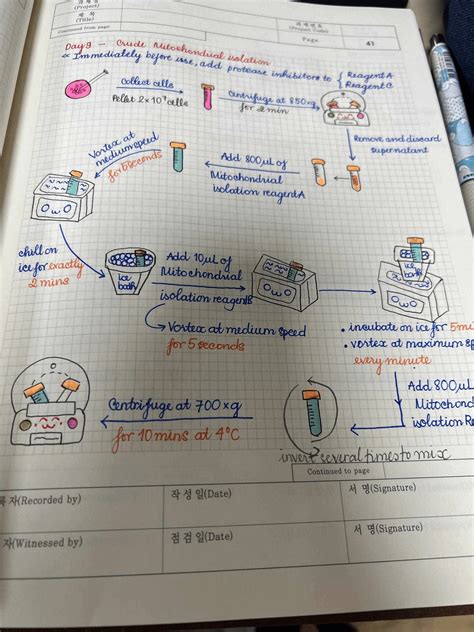 과 제 명
(Project)
제 목
(Title)
Continued from page
과제번호
(Project Code)
Page
41
Day 9 - Crude Mitochondrial isolation
* Immediately before use, add protease inhibitors to { Reagent A
Reagent C
Collect cells
Pellet 2x10⁷ cells
Centrifuge at 850xg
for 2 min
Remove and discard
supernatant
Add 800μL of
Mitochondrial
isolation reagent A
Vortex at
medium speed
for 5 seconds
OwO
chill on
ice for exactly
2 mins
ice
bath
Add 10μL of
Mitochondrial
isolation reagent B
→ Vortex at medium speed
for 5 seconds
OwO
ice
bath
OwO
• incubate on ice for 5mi
• vortex at maximum sp
every minute
Add 800μL
Mitochond
isolation Re
invert several times to mix
Centrifuge at 700xg
for 10 mins at 4°C
Continued to page
록 자(Recorded by)
작 성 일(Date)
서 명(Signature)
자(Witnessed by)
점 검 일(Date)
서 명(Signature)